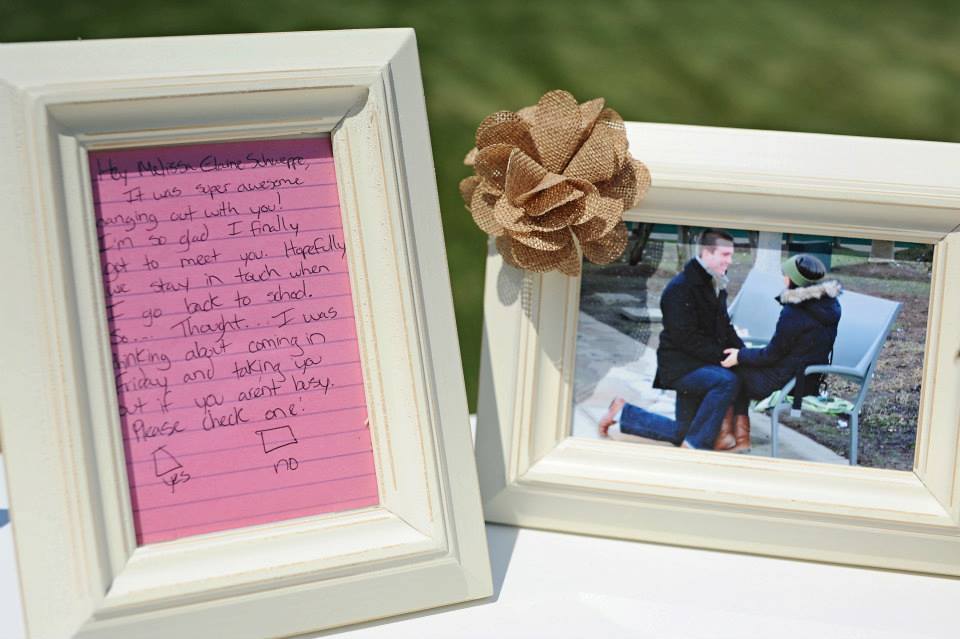 Hey Melissa Elaine Schweppe,
It was super awesome
hanging out with you!
I'm so glad I finally
got to meet you. Hopefully
we stay in touch when
I go back to school.
So... Thought... I was
thinking about coming in
Friday and taking you
out if you aren't busy.
Please check one:
yes
no